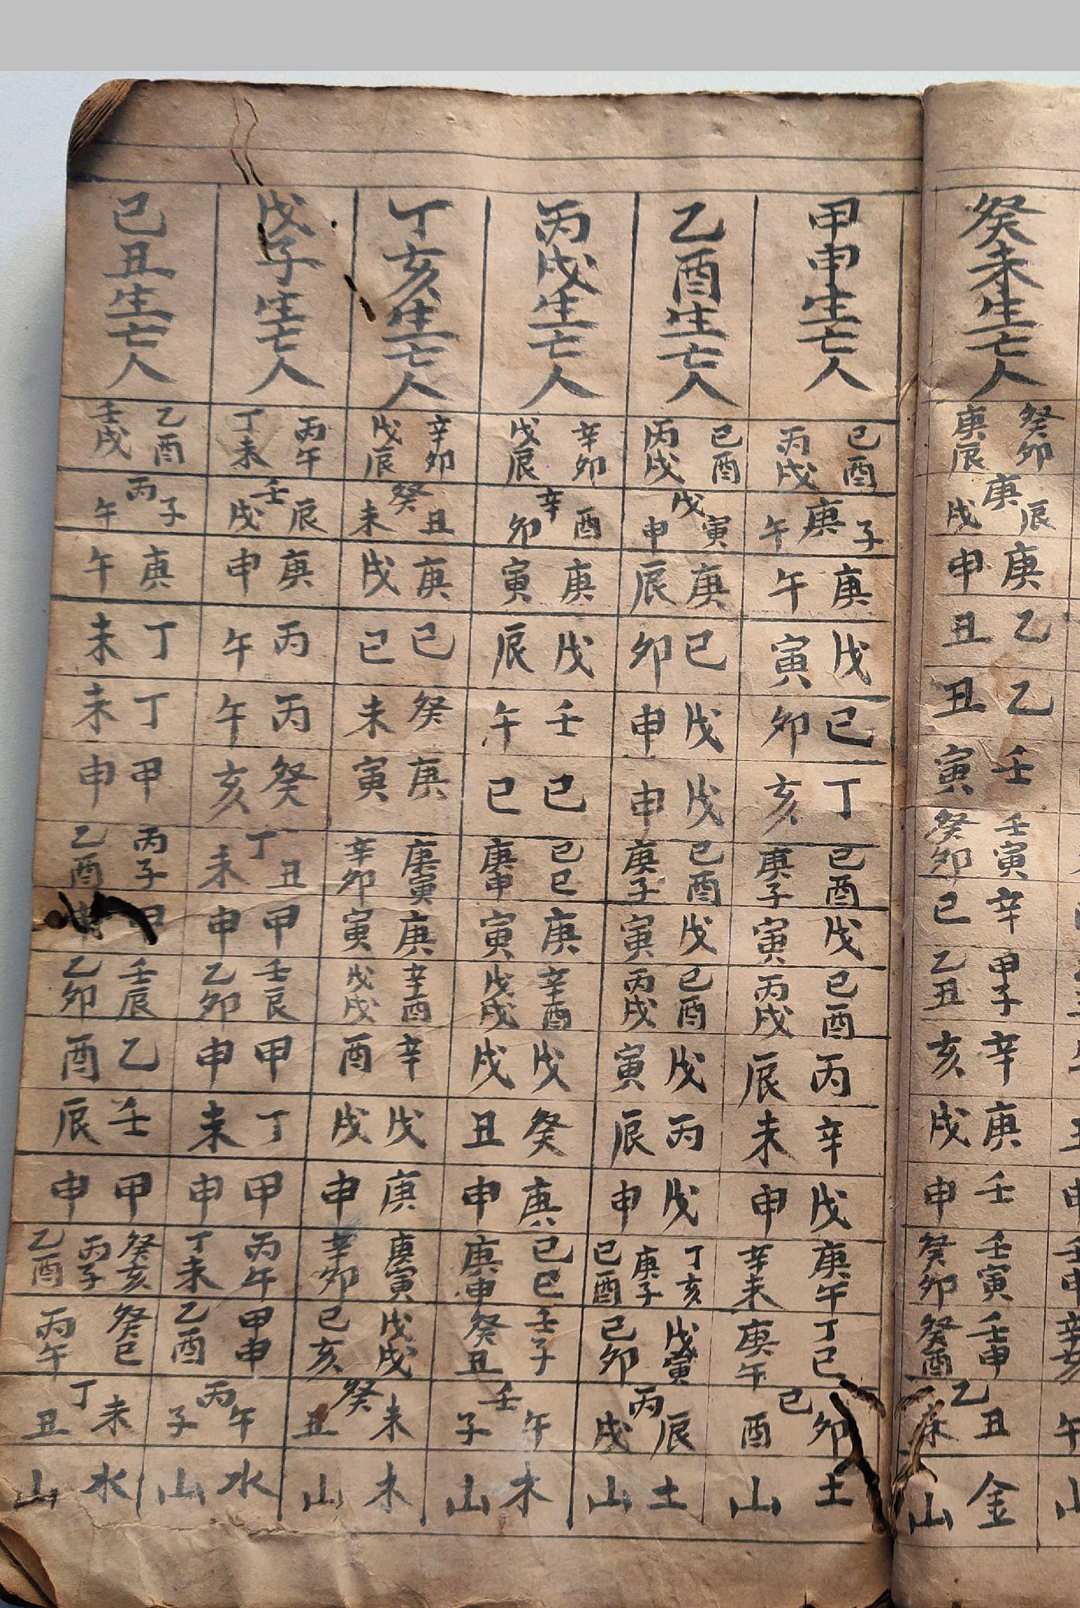 癸未生亡人
癸卯 庚辰
庚辰戌
庚申
乙丑
乙丑
壬寅
壬寅 癸卯
辛巳
甲子 乙丑
辛亥
庚戌
壬申
壬寅 癸卯
壬申 癸酉
乙丑
金山
甲申生亡人
己酉 丙戌
庚子午
庚午
戊寅
己卯
丁亥
己酉 庚子
戊寅
己酉 丙戌
丙辰
辛未
戊申
庚午 辛未
丁巳 庚午
己卯酉
土山
乙酉生亡人
己酉 丙戌
戊寅申
庚辰
己卯
戊申
戊申
己酉 庚子
戊寅
己酉 丙戌
戊寅
丙辰
戊申
丁亥 庚子 己酉
戊寅 己卯
丙辰戌
土山
丙戌生亡人
辛卯 戊辰
辛酉卯
庚寅
戊辰
壬午
己巳
己巳 庚申
庚寅
辛酉 戊戌
戊戌
癸丑
庚申
己巳 庚申
壬子 癸丑
壬午子
木山
丁亥生亡人
辛卯 戊辰
癸丑未
庚戌
己巳
癸未
庚寅
庚寅 辛卯
庚寅
辛酉 戊戌
辛酉
戊戌
庚申
庚寅 辛卯
戊戌 己亥
癸未丑
木山
戊子生亡人
丙午 丁未
壬辰戌
庚申
丙午
丙午
癸亥
丁丑未
甲申
壬辰 乙卯
甲申
丁未
甲申
丙午 丁未
甲申 乙酉
丙午子
水山
己丑生亡人
乙酉 壬戌
丙子午
庚午
丁未
丁未
甲申
丙子 乙酉
壬辰 乙卯
乙酉
壬辰
甲申
癸亥 丙子 乙酉
癸巳 丙午
丁未丑
水山